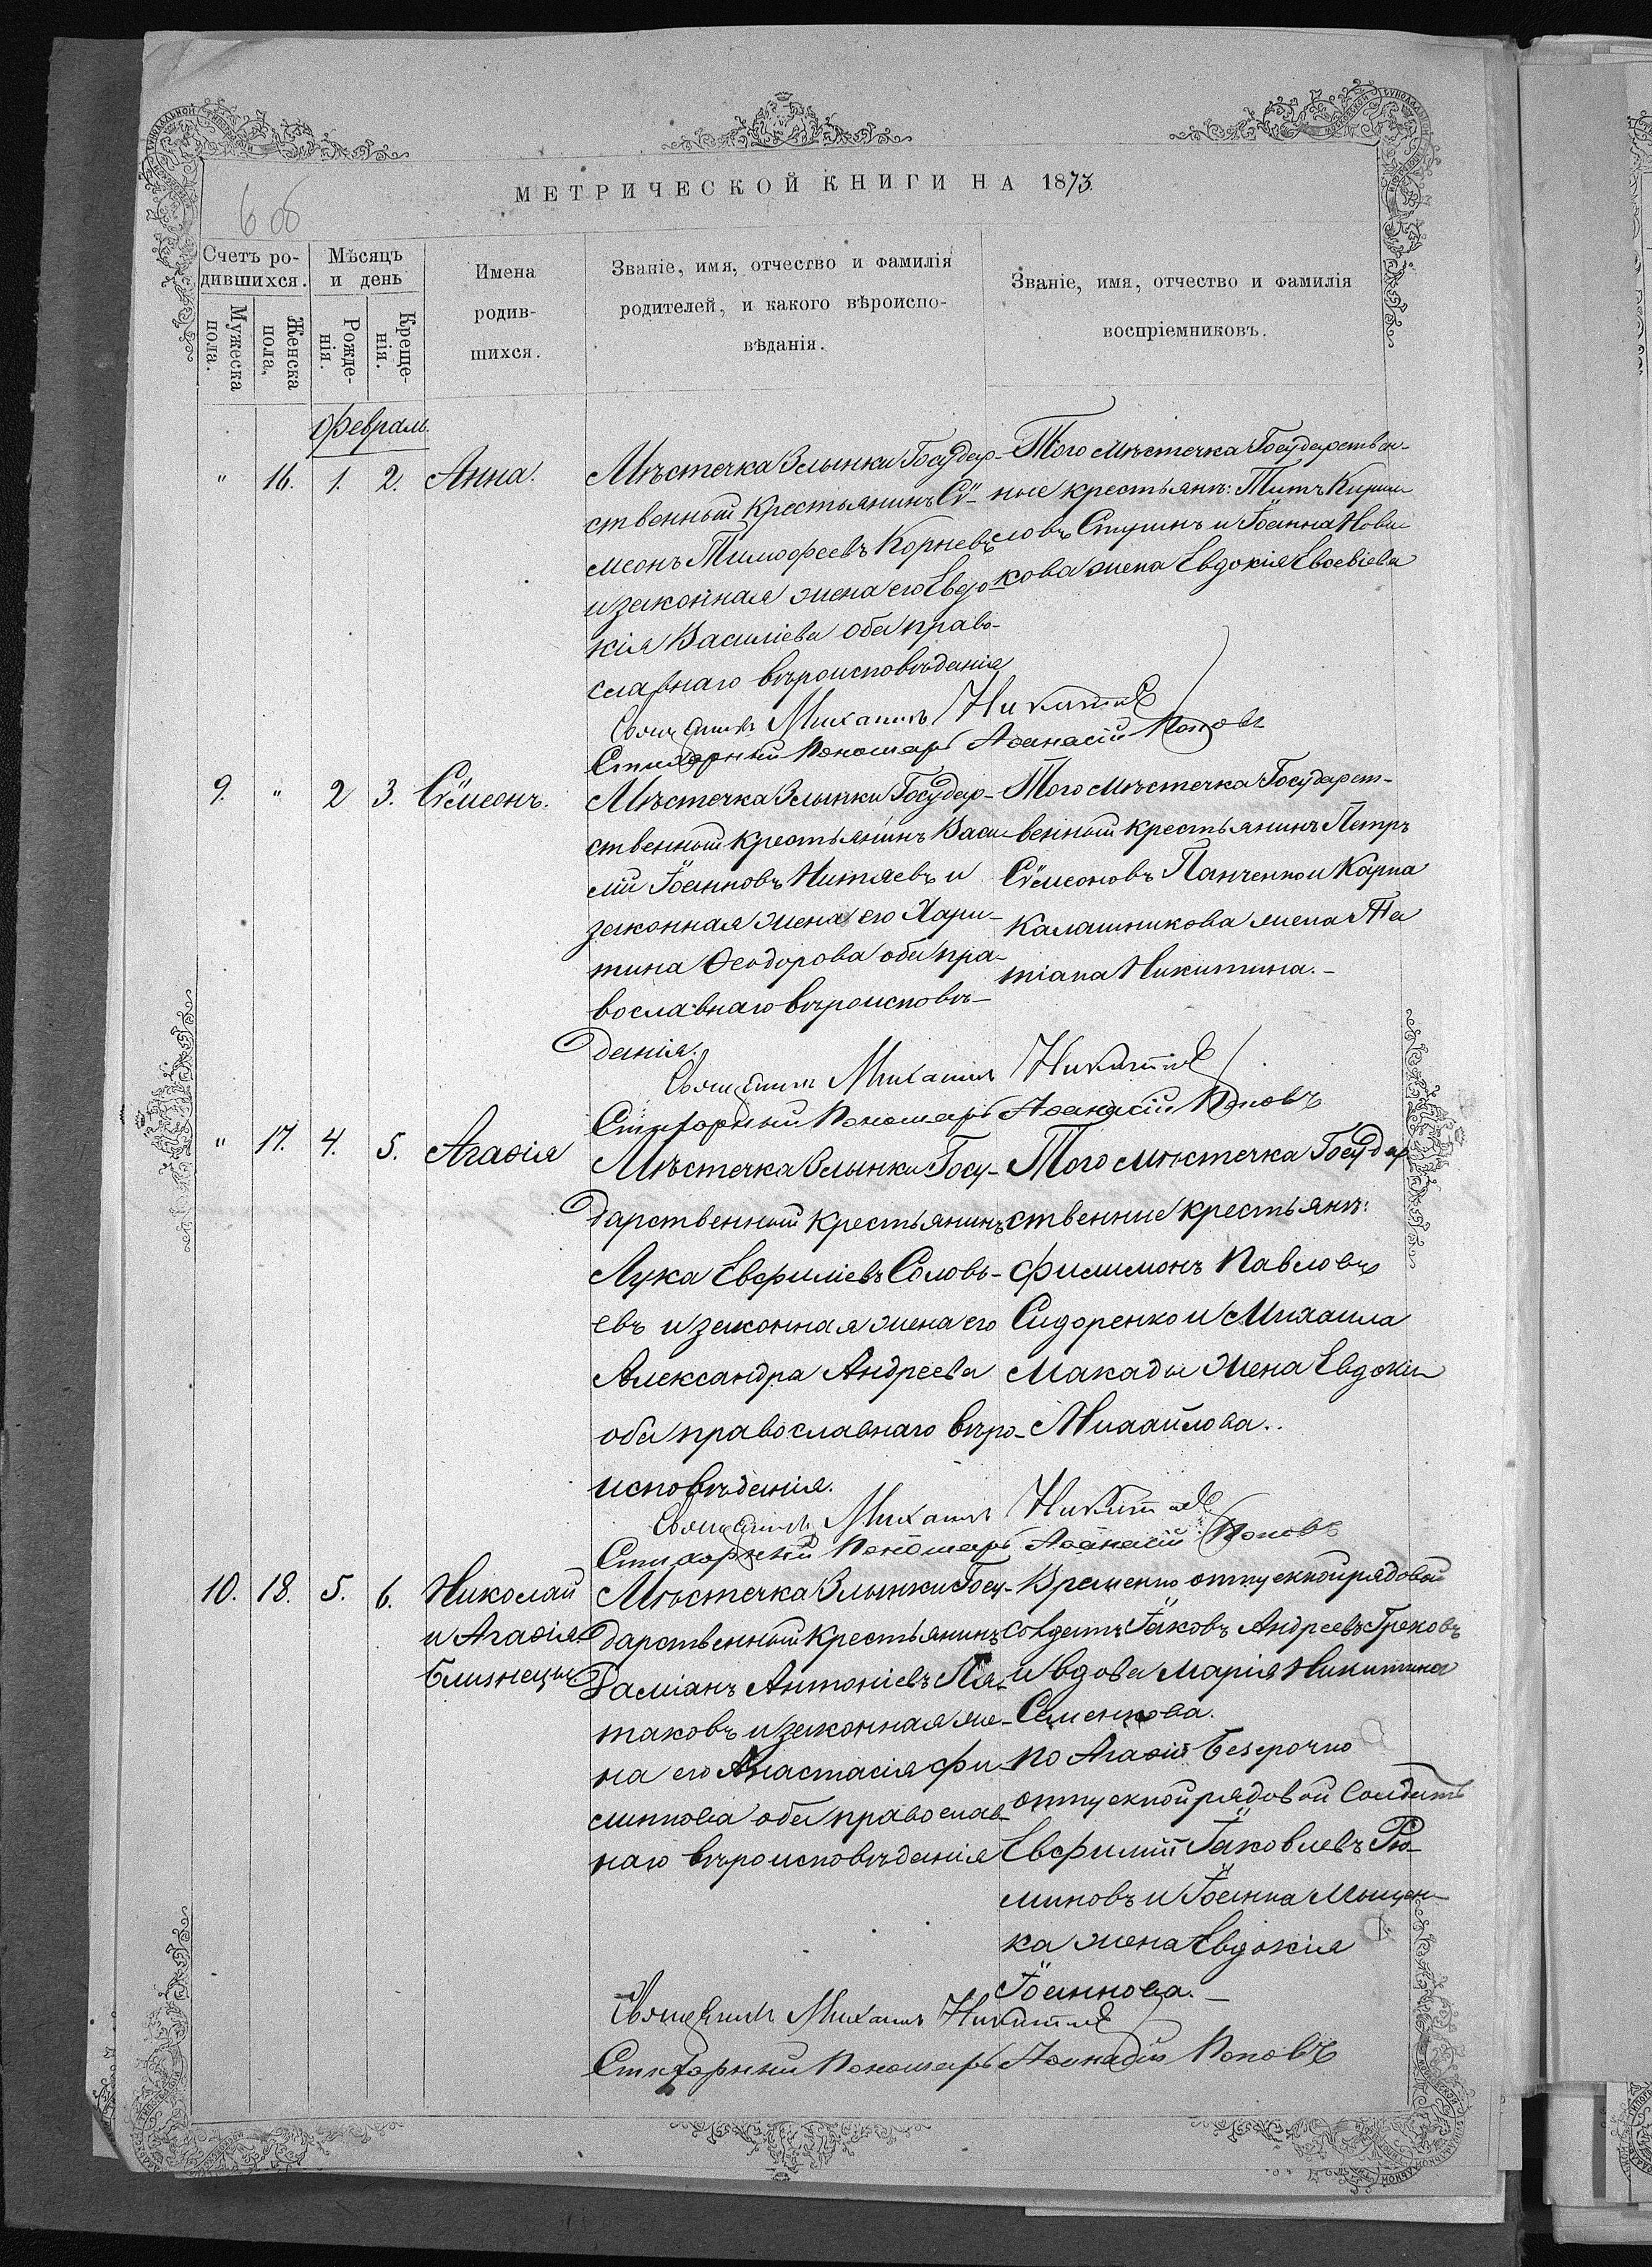 МЕТРИЧЕСКОЙ КНИГИ НА 1873.
Счетъ ро-
дившихся.
Мѣсяцъ
и день
Мужеска
пола.
Женска
пола.
Рожде-
нія.
Креще-
нія.
Имена
родив-
шихся.
Званіе, имя, отчество и фамилія
родителей, и какого вѣроиспо-
вѣданія.
Званіе, имя, отчество и фамилія
воспріемниковъ.
Февраль
" 16. 1. 2. Анна.
Мѣстечка Злынки Государ-
ственный крестьянинъ Сѵ-
меонъ Тимофеевъ Корневъ
и законная жена его Евдо-
кія Василіева оба право-
славнаго вѣроисповѣданія
Того мѣстечка Государствен-
ные крестьянѣ: Титъ Кирил
ловъ Ступинъ и Іоанна Нови
кова жена Евдокія
Священникъ Михаилъ Никитинъ
Стихарный Пономарь Аѳанасій Поповъ
9. " 2 3. Сѵмеонъ.
Мѣстечка Злынки Государ-
ственный крестьянинъ Васи
лій Іоанновъ Митяевъ и
законная жена его Хари-
тина Ѳеодорова оба пра-
вославнаго вѣроисповѣ-
данія.
Того мѣстечка Государст-
венный крестьянинъ Петръ
Сѵмеоновъ Панченко и Карпа
Калашникова жена Та
тіана Никитина.-
Священникъ Михаилъ Никитинъ
Стихарный Пономарь Аѳанасій Поповъ
" 17. 4. 5. Агаѳія
Мѣстечка Злынки Госу-
дарственный крестьянинъ
Лука Евфиміевъ Соловь-
евъ и законная жена его
Александра Андреева
оба православнаго вѣро-
исповѣданія.
Того мѣстечка Государ
ственные крестьянѣ:
Филимонъ Павловъ
Сидоренко и Михаила
Макады жена Евдокія
Михайлова..
Священникъ Михаилъ Никитинъ
Стихарный Пономарь Аѳанасій Поповъ
10. 18. 5. 6. Николай
и Агаѳія
Близнецы
Мѣстечка Злынки Госу-
дарственный крестьянинъ
Даміанъ Антоніевъ Пя-
таковъ и законная же-
на его Анастасія Фи-
липпова оба православ
наго вѣроисповѣданія
Временно отпускной рядовой
солдатъ Іаковъ Андреевъ Грековъ
и вдова Марія Никитина
Семенкова.
По Агаѳіи безсрочно
отпускной рядовой Солдатъ
Евфимій Іаковлевъ Рю-
миновъ и Іоанна Мищен-
ка жена Евдокія
Іоаннова.-
Священникъ Михаилъ Никитинъ
Стихарный Пономарь Аѳанасій Поповъ